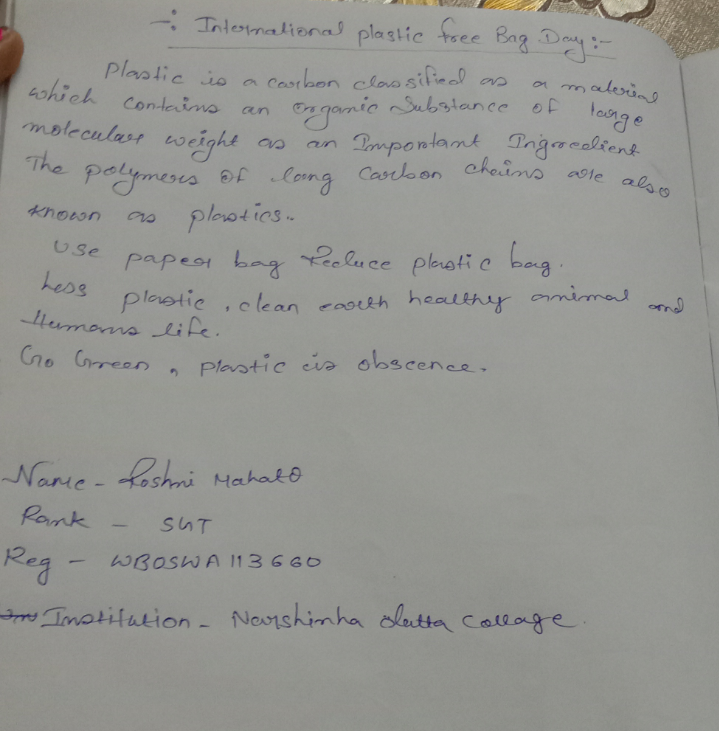 -: International plastic free Bag Day :-
Plastic is a carbon classified as a material
which contains an organic Substance of large
molecular weight as an Important Ingredient
The polymers of long Carbon chains are also
known as plastics.
Use paper bag Reduce plastic bag.
Less plastic, clean earth healthy animal and
Humans life.
Go Green, plastic is obscence.
Name - Roshni Mahato
Rank - SUT
Reg - WBOSWA113660
Institution - Narshinha dutta Collage.